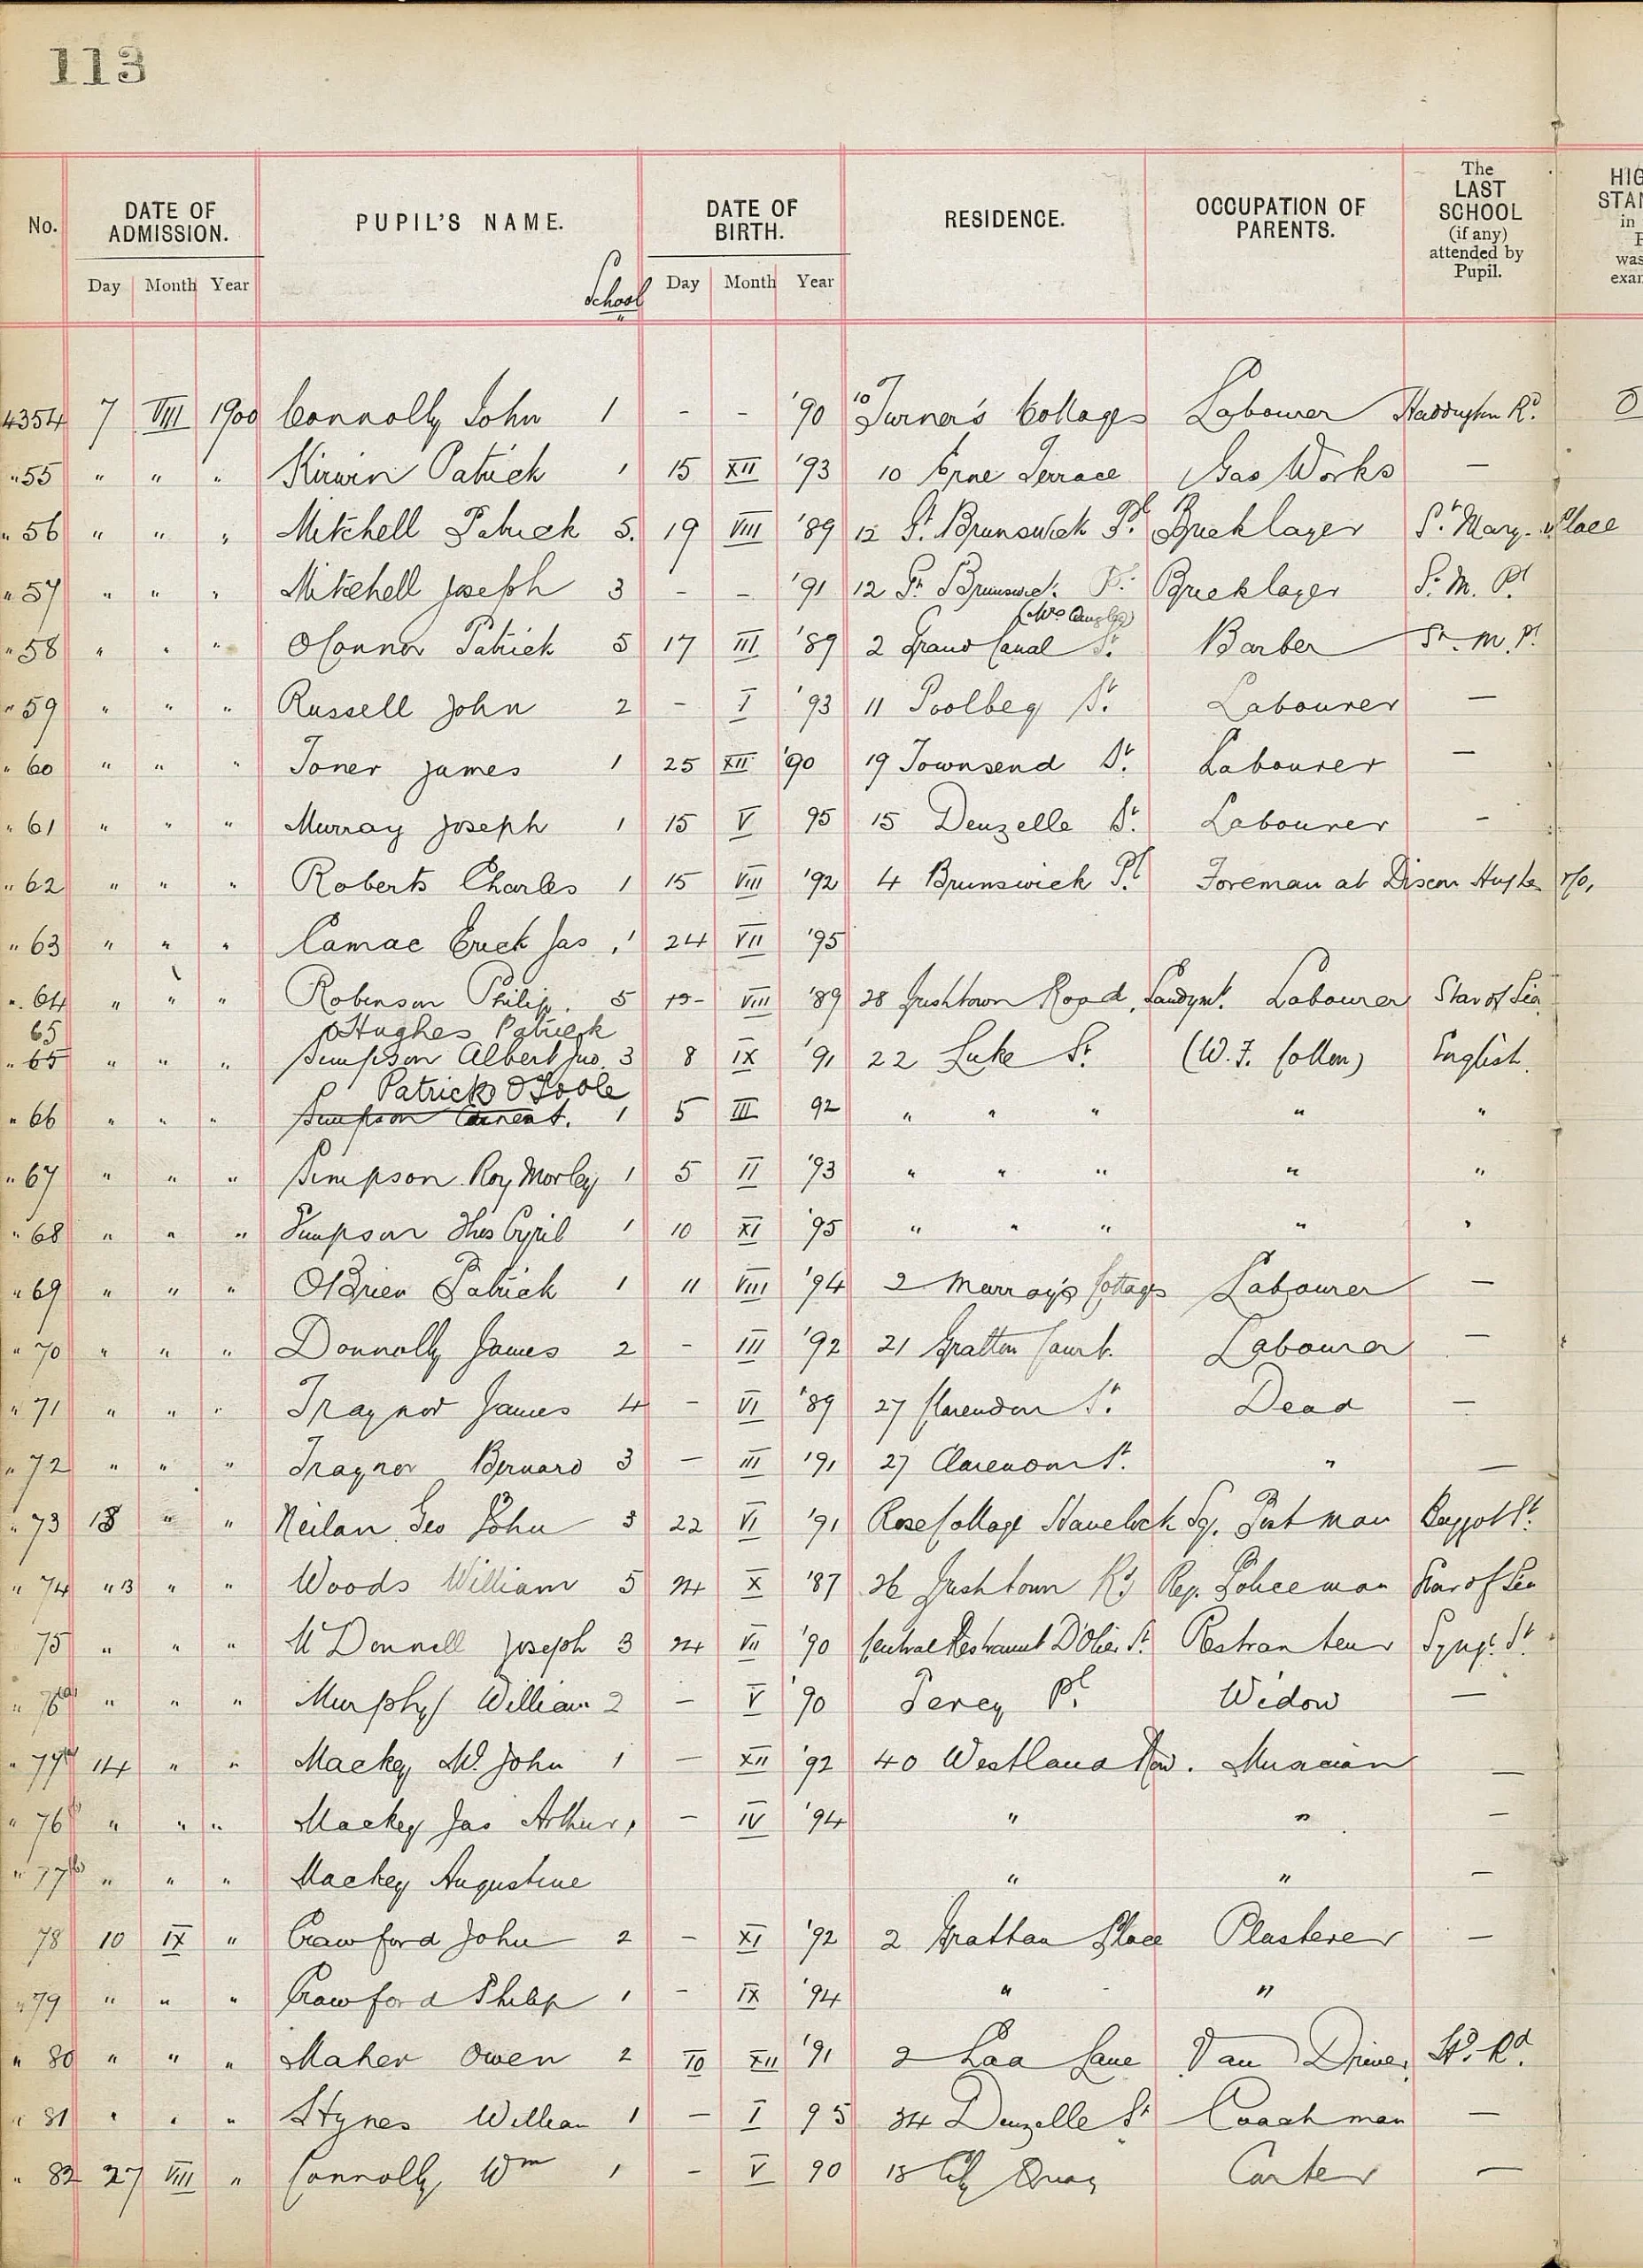 113
No. DATE OF ADMISSION. PUPIL'S NAME. DATE OF BIRTH. RESIDENCE. OCCUPATION OF PARENTS. The LAST SCHOOL (if any) attended by Pupil.
Day Month Year School Day Month Year
4354 7 VIII 1900 Connolly John 1 - - '90 10 Turner's Cottages Labourer Haddington Rd.
" 55 " " " Kirwin Patrick 1 15 XII '93 10 Erne Terrace Gas Works —
" 56 " " " Mitchell Patrick 5. 19 VIII '89 12 Gt. Brunswick Pl. Bricklayer St. Mary's Place
" 57 " " " Mitchell Joseph 3 - - '91 12 Gt. Brunswick Pl. Bricklayer St. M. Pl
" 58 " " " OConnor Patrick 5 17 III '89 2 Grand Canal St. Barber St. M. Pl.
" 59 " " " Russell John 2 - I '93 11 Poolbeg St. Labourer —
" 60 " " " Toner James 1 25 XII '90 19 Townsend St. Labourer —
" 61 " " " Murray Joseph 1 15 V 95 15 Denzelle St. Labourer -
" 62 " " " Roberts Charles 1 15 VIII '92 4 Brunswick Pl. Foreman at
" 63 " " " Camac Erick Jas 1 24 VII '95
" 64 " " " Robinson Philip. 5 VIII '89 28 Irishtown Road, Sandymt. Labourer Star of Sea
65 Hughes Patrick
" 65 " " " Simpson Albert Jno. 3 8 IX '91 22 Luke St. (W. F. Collen) English.
Patrick O'Toole
" 66 " " " Simpson Ernest. 1 5 III 92 " " " " "
" 67 " " " Simpson Roy Morley 1 5 II '93 " " " " "
" 68 " " " Simpson Thos Cyril 1 10 XI '95 " " " " "
" 69 " " " OBrien Patrick 1 11 VIII '94 2 Murray's Cottages Labourer —
" 70 " " " Donnolly James 2 - III '92 21 Grattan Court. Labourer —
" 71 " " " Traynor James 4 - VI '89 27 Clarendon St. Dead —
" 72 " " " Traynor Bernard 3 — III '91 27 Clarendon St. " —
" 73 13 " " Neilan Geo John 3 22 VI '91 Rose Cottage Havelock Sq. Postman Baggot St.
" 74 "13 " " Woods William 5 24 X '87 26 Irishtown Rd Policeman Star of Sea
75 " " " McDonnell Joseph 3 24 VII '90 Central Restraunt D'Olier St. Restranteur Synge St.
" 76(a) " " " Murphy William 2 — V '90 Percy Pl. Widow —
" 77(a) 14 " " Mackey John 1 — XII '92 40 Westland Row. Musician —
" 76 " " " Mackey Jas Arthur 1 — IV '94 " " —
" 77(b) " " " Mackey Augustine " " —
78 10 IX " Crawford John 2 - XI '92 2 Grattan Place Plasterer —
" 79 " " " Crawford Philip 1 - IX '94 " "
" 80 " " " Maher Owen 2 10 XII '91 2 Laa Lane Van Driver Hd. Rd.
" 81 " " " Hynes William 1 — I 95 34 Denzelle St Coachman —
" 82 27 VIII " Connolly Wm 1 - V 90 18 City Quay Carter —